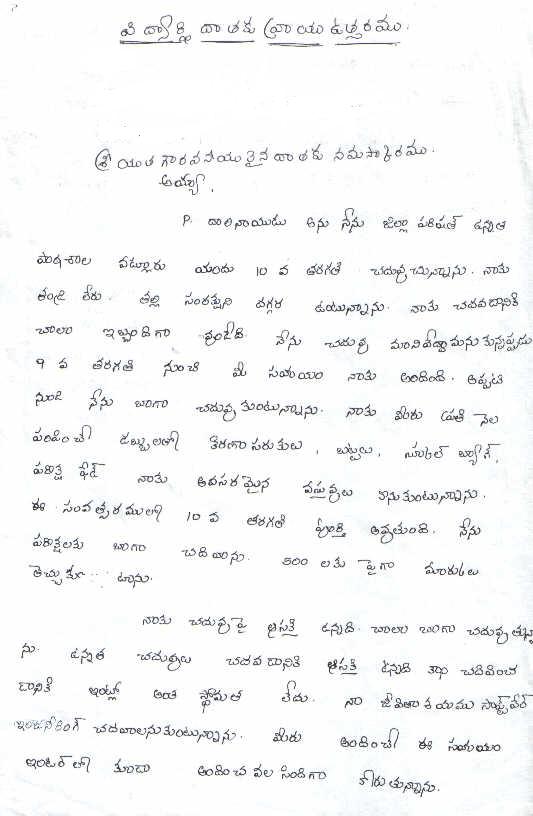 విద్యార్థి దాతకు వ్రాయు ఉత్తరము.
శ్రీయుత గౌరవనీయులైన దాతకు నమస్కారము.
అయ్యా,
P. దాలినాయుడు అను నేను జిల్లా పరిషత్ ఉన్నత
పాఠశాల వట్లూరు యందు 10 వ తరగతి చదువుచున్నాను. నాకు
తండ్రి లేరు. తల్లి సంరక్షణ దగ్గర ఉంటున్నాను. నాకు చదవడానికి
చాలా ఇబ్బందిగా వుండేది. నేను చదువు మానివేద్దామనుకున్నప్పుడు
9 వ తరగతి నుంచి మీ సహాయం నాకు అందింది. అప్పటి
నుండి నేను బాగా చదువుకుంటున్నాను. నాకు మీరు ప్రతి నెల
పంపించే డబ్బులతో కిరాణా సరుకులు, బట్టలు, స్కూల్ బ్యాగ్,
పరీక్ష ఫీజ్ నాకు అవసరమైన వస్తువులు కొనుకుంటున్నాను.
ఈ సంవత్సరములో 10 వ తరగతి పూర్తి అవుతుంది. నేను
పరీక్షలకు బాగా చదివాను. 500 లకు పైగా మార్కులు
తెచ్చుకుం టాను.
నాకు చదువుపై ఆసక్తి ఉన్నది. చాలా బాగా చదువుతున్నా
ను. ఉన్నత చదువులు చదవడానికి ఆసక్తి ఉన్నది కాని చదివించ
డానికి ఇంట్లో అంత స్థోమత లేదు. నా జీవితాశయము సాఫ్ట్‌వేర్
ఇంజనీరింగ్ చదవాలనుకుంటున్నాను. మీరు అందించే ఈ సహాయం
ఇంటర్‌లో కూడా అందించవలసిందిగా కోరుతున్నాను.